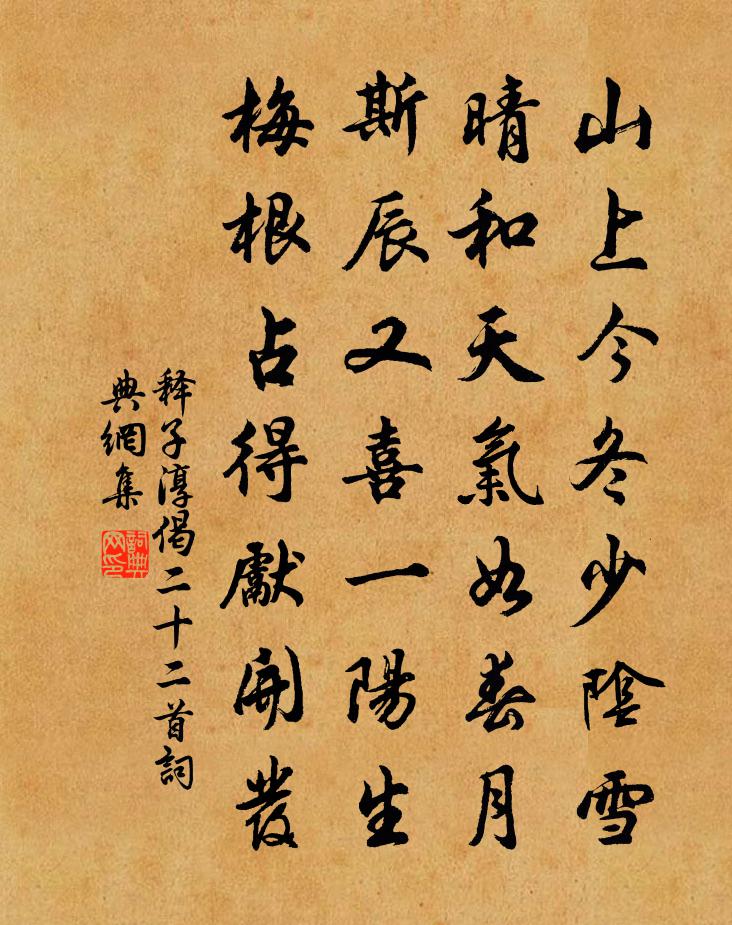 山上今冬少陰雪
晴和天氣如春月
斯辰又喜一陽生
梅根占得獻開發
释子淳偈二十二首詞
典網集
詞典
网印